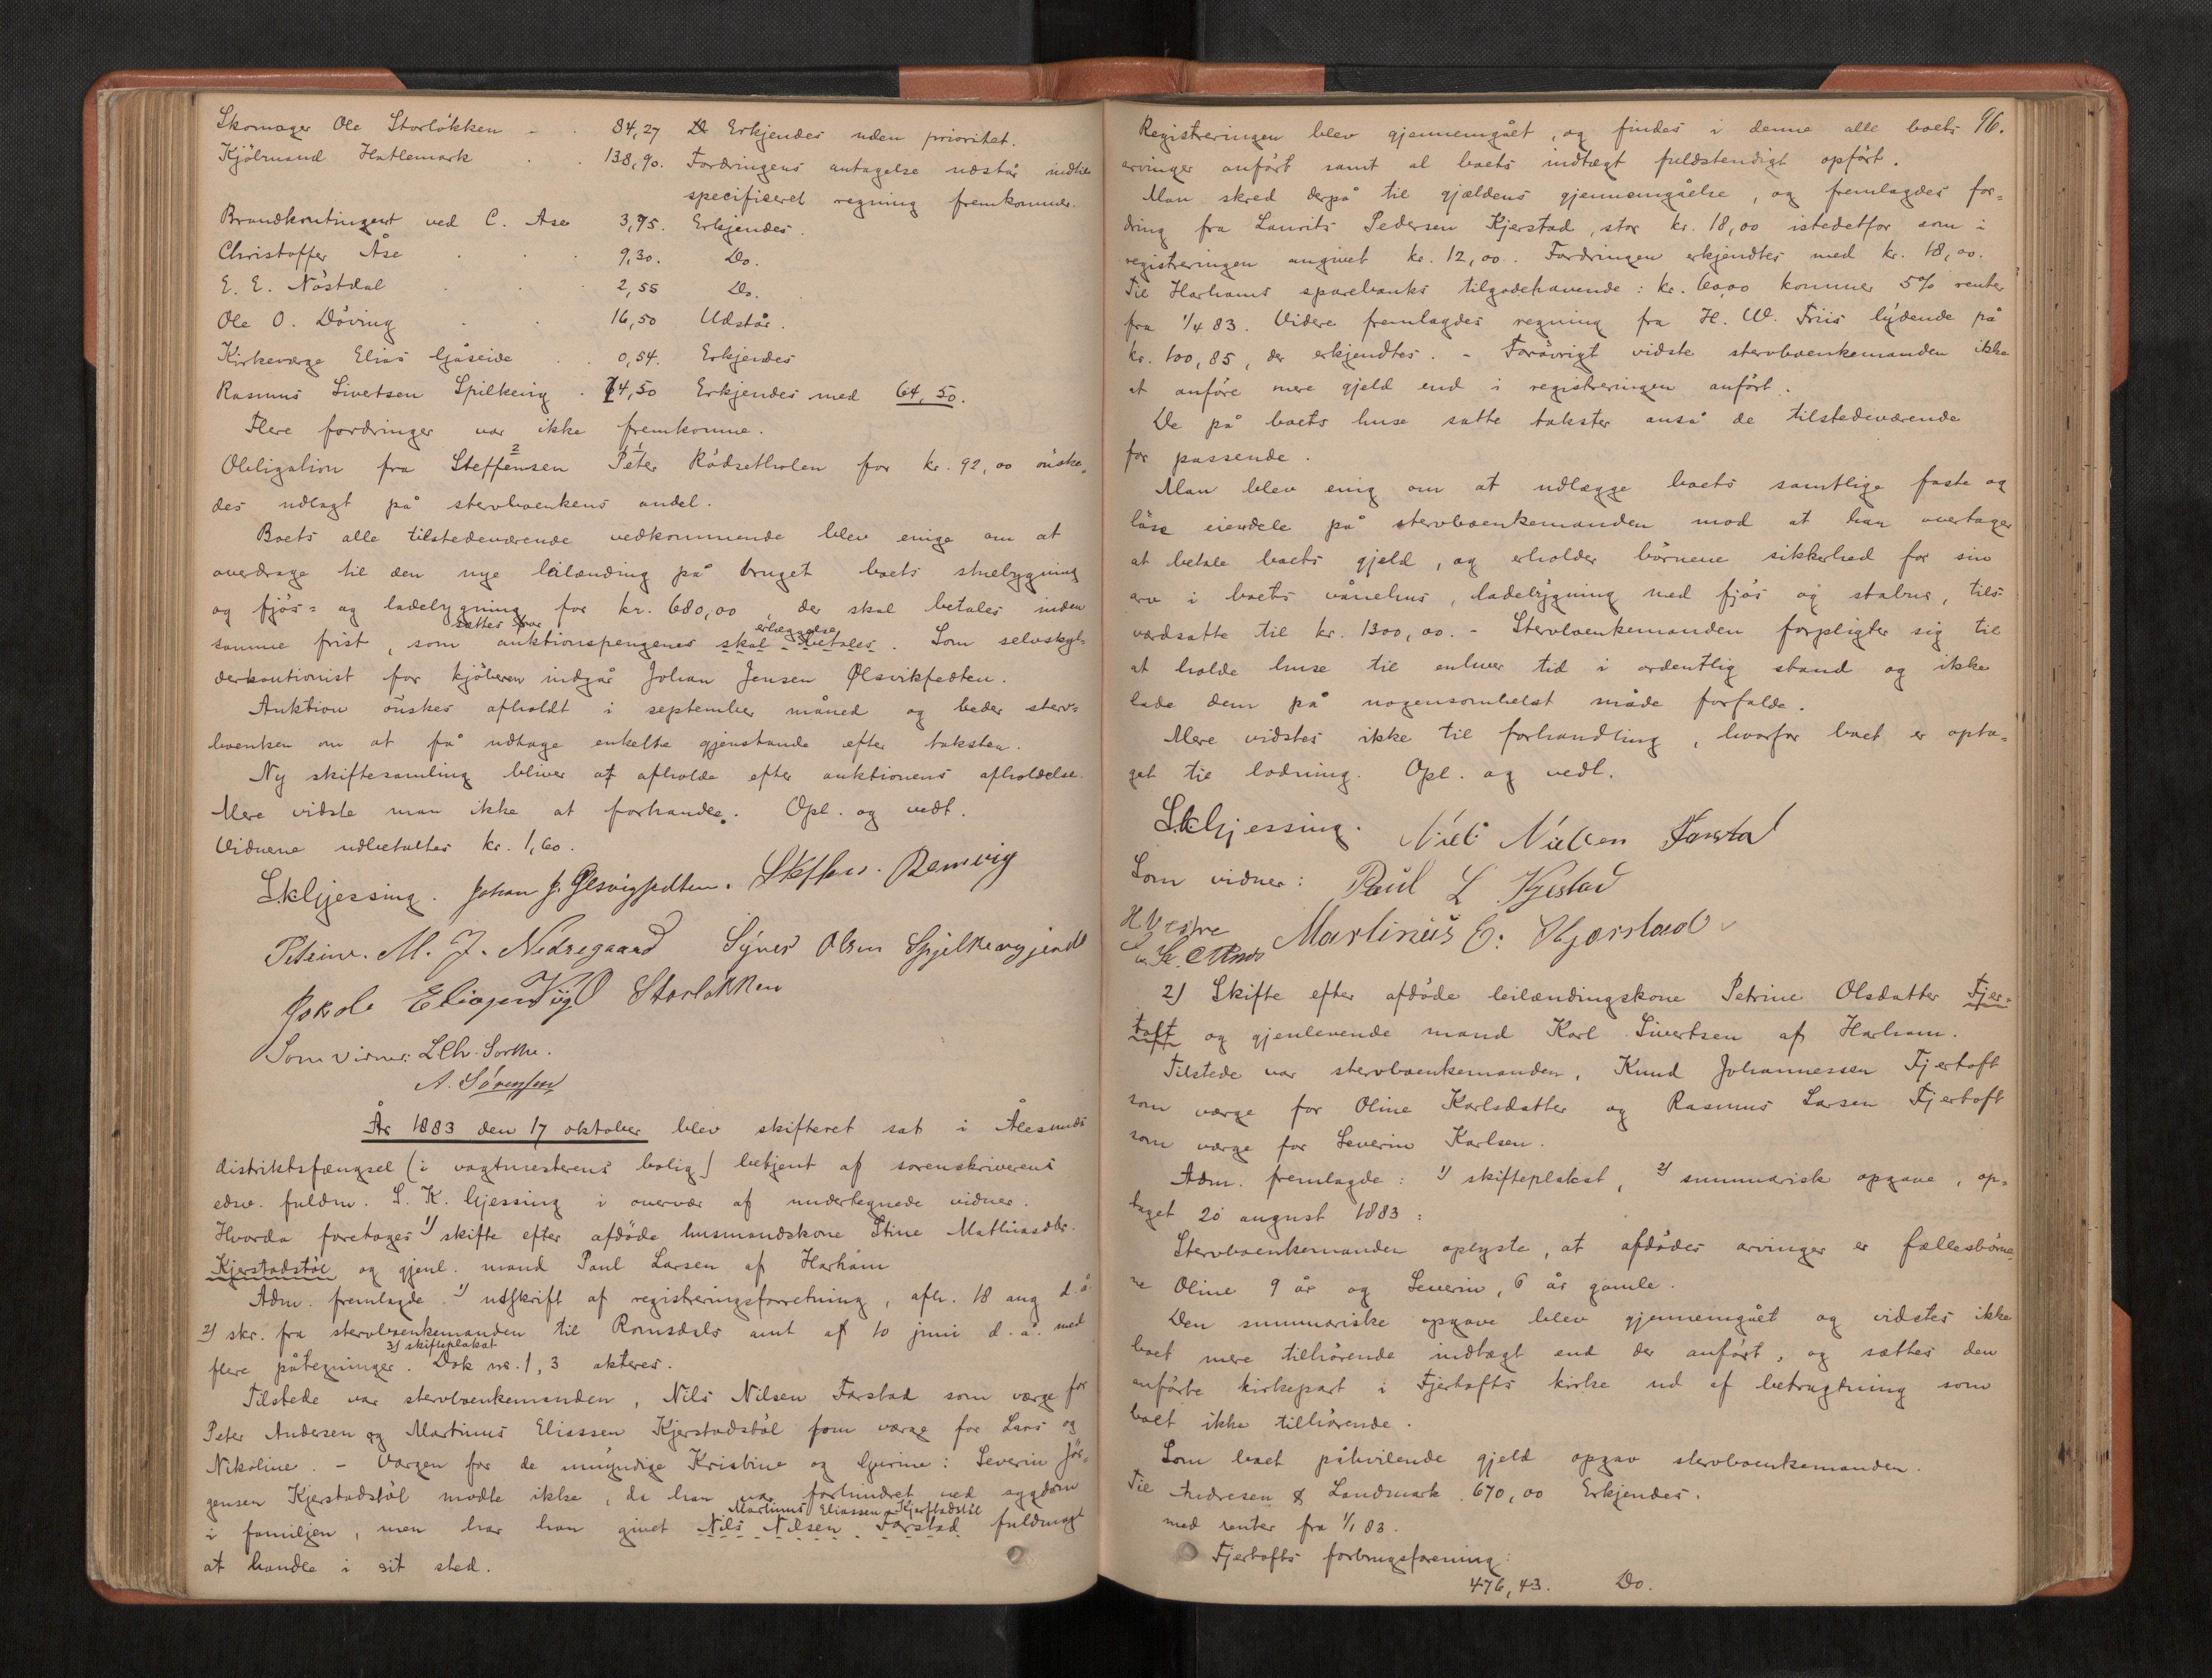 Skomager Ole Storlökken - . 84,27 Do Erkjendes uden prioritet.
Kjöbmand Hatlemark . . 138,90. Fordringens antagelse udstår indtil
specificeret regning fremkommer.
Brandkontingent ved C. Ase 3,75. Erkjendes.
Christoffer Åse . . . 9,30. Do.
E. E. Nöstdal . . 2,55 Do.
Ole O. Döving . . 16,50 Udstår.
Kirkeværge Elias Gåseide . . 0,54. Erkjendes
Rasmus Sivertsen Spilkevig . 74,50 Erkjendes med 64,50.
Flere fordringer var ikke fremkomne.
Obligation fra Steffensen Peter Rödsetholen for kr. 92,00 önske-
des udlagt på stervboenkens andel.
Boets alle tilstedeværende vedkommende blev enige om at
overdrage til den nye leilænding på bruget boets stuebygning
og fjös- og ladebygning for kr. 680,00, der skal betales inden
sættes for erlæggelse
samme frist, som auktionspengenes skal betales. Som selvskyl-
derkautionist for kjöberen indgår Johan Jensen Ølsvikfedten.
Auktion önskes afholdt i september måned og beder sterv-
boenken om at få udtage enkelte gjenstande efter taksten.
Ny skiftesamling bliver at afholde efter auktionens afholdelse.
Mere vidste man ikke at forhandle. Opl. og vedt.
Vidnerne udbetaltes kr. 1,60.
S.K.Gjessing. Johan J. Ølsvigfedten. Steffen. Remvig
Petrine. M. J. Nedregaard Syver Olsen Spjelkevigjend
Jakob Eliasen Vigl Storløkken
Som vidner: L Chr. Sorthe.
A. Sørensen
År 1883 den 17 oktober blev skifteret sat i Ålesunds
distriktsfængsel (i vagtmesterens bolig) betjent af sorenskriverens
edsv. fuldm. S. K. Gjessing i overvær af undertegnede vidner.
Hvorda foretages 1) skifte efter afdöde husmandskone Stine Mathiasdtr.
Kjerstadstöl og gjenl. mand Paul Larsen af Harham
Adm. fremlagde 1) udskrift af registreringsforretning, afh. 18 aug d. å
2) skr. fra stervboenkemanden til Romsdals amt af 10 juni d. a. med
3) skifteplakat
flere påtegninger. Dok nr. 1, 3 akteres.
Tilstede var stervboenkemanden, Nils Nilsen Farstad som værge for
Peter Andersen og Martinus Eliassen Kjerstadstöl som værge for Lars og
Nikoline. - Værgen for de umyndige Kristine og Gurine: Severin Jör-
gensen Kjerstadstöl mödte ikke, da han var forhindret ved sygdom
Martinus Eliassen Kjerstadstöl
i familjen, men har han givet Nils Nilsen Farstad fuldmagt
at handle i sit sted.
96.
Registreringen blev gjennemgået, og findes i denne alle boets
arvinger anført samt al boets indtægt fuldstendigt opført.
Man skred derpå til gjældens gjennemgåelse, og fremlagdes for-
dring fra Laurits Pedersen Kjerstad, stor kr. 18,00 istedetfor som i
registreringen angivet kr. 12,00. Fordringen erkjendtes med kr. 18,00.
Til Harhams sparebanks tilgodehavende: kr. 60,00 kommer 5% renter
fra 1/4 83. Videre fremlagdes regning fra H. W. Friis lydende på
kr. 100,85, der erkjendtes. - Forövrigt vidste stervboenkemanden ikke
at anföre mere gjeld end i registreringen anfört.
De på boets huse satte takster anså de tilstedeværende
for passende.
Man blev enig om at udlægge boets samtlige faste og
löse eiendele på stervboenkemanden mod at han overtager
at betale boets gjeld, og erholder börnene sikkerhed for sin
arv i boets vånehus, ladebygning med fjös og stabur, tils.
værdsatte til kr. 1300,00. - Stervboenkemanden forpligter sig til
at holde huse til enhver tid i ordentlig stand og ikke
lade dem på nogensomhelst måde forfalde.
Mere vidstes ikke til forhandling, hvorfor boet er opta-
get til lodning. Opl. og vedt.
S.K.Gjessing. Niels Nielsen Farstad
Som vidner: Paul L Kjestad
Martinus E. Kjerstad
2) Skifte efter afdöde leilændingskone Petrine Olsdatter Fjer-
toft og gjenlevende mand Karl Sivertsen af Harham.
Tilstede var stervboenkemanden, Knud Johannessen Fjertoft
som værge for Oline Karlsdatter og Rasmus Larsen Fjertoft
som værge for Severin Karlsen.
Adm. fremlagde: 1) skifteplakat, 2) summarisk opgave, op-
taget 20 august 1883:
Stervboenkemanden oplyste, at afdödes arvinger er fællesbörne-
ne Oline 9 år og Severin, 6 år gamle.
Den summariske opgave blev gjennemgået og vidstes ikke
boet mere tilhörende indtægt end der anfört, og sættes den
anförte kirkepart i Fjertofts kirke ud af betragtning som
boet ikke tilhörende.
Som boet påhvilende gjeld opgav stervboenkemanden.
Til Andresen & Landmark 670,00 Erkjendes.
med renter fra 1/1 83.
Fjertofts forbrugsforening:
476,43. Do.